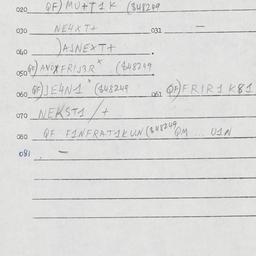 020 QF) MU+T1K (848249
030 NE4XT+ 031 —
040 )A1NEXT+
050 QF) ANOXFRIJ3R* (848249
060 QF) JE4N1* (848249 061 QF) FRIR1K81
070 NEKST1/+
080 QF F1NFRAT1KUN (848249 QM ... U1N
081 . —